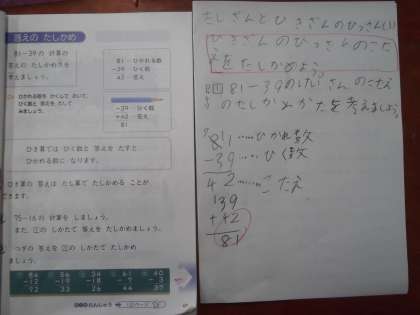 答えの たしかめ
81－39 の 計算の
答えの たしかめ方を
考えましょう。
81 …ひかれる数
－39 …ひく数
42 …答え
ひかれる数を かくして おいて、
ひく数と 答えを たして
みましょう。
－39 …ひく数
＋42 …答え
81
ひき算では ひく数と 答えを たすと
ひかれる数に なります。
ひき算の 答えは たし算で たしかめる ことが
できます。
75－16の 計算を しましょう。
また、①の しかたで 答えを たしかめましょう。
つぎの 答えを ①の しかたで たしかめ
ましょう。
84 56 34 61 40
－12 －19 －18 －17 －3
72 37
たしざんとひきざんのひっさん(1)
ひきざんのひっさんのこた
えをたしかめよう
1 81－39のけいさんのこたえ
のたしかめかたを考えましょう
81……ひかれ数
－39……ひく数
42……こたえ
39
＋42
81